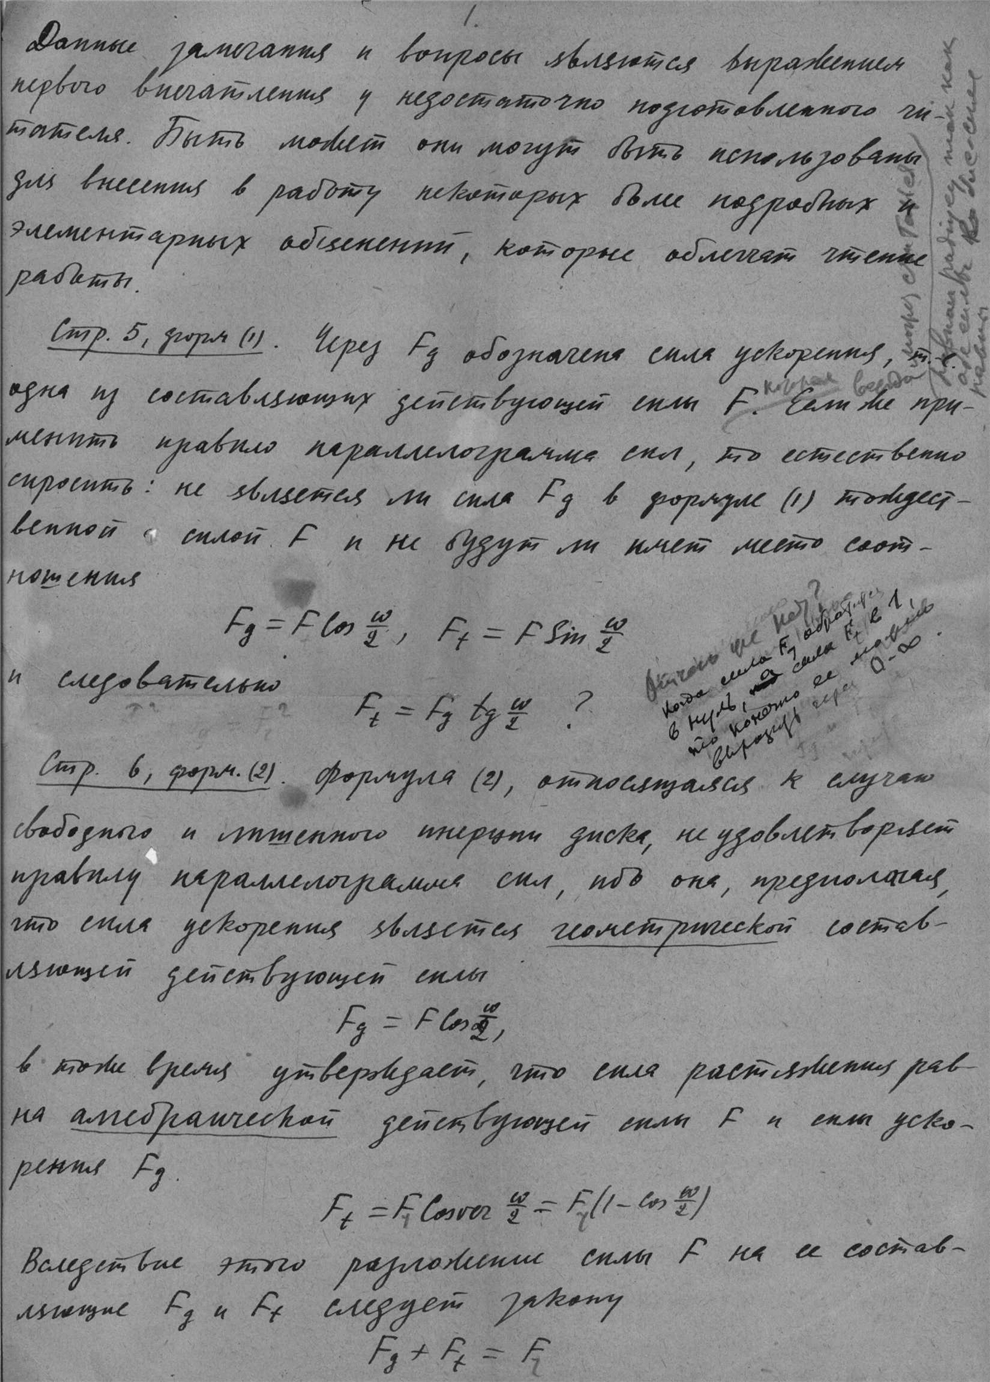 1.
Данные замечания и вопросы являются выражением
первого впечатления у недостаточно подготовленного чи-
тателя. Быть может они могут быть использованы
для внесения в работу некоторых более подробных и
элементарных объяснений, которые облегчат чтение
работы.
Стр. 5, форм (1). Через Fg обозначена сила ускорения,
одна из составляющих действующей силы F. Если же при-
менить правило параллелограмма сил, то естественно
спросить: не является ли сила Fg в формуле (1) тождест-
венной силой F и не будут ли имет место соот-
ношения
Fg = F Cos ω/2, Ft = F Sin ω/2
и следовательно
Ft = Fg tg ω/2 ?
когда сила Fg
в нуль, сила Ft в 1,
ее
через 0-∞.
Стр. 6, форм. (2). Формула (2), относящаяся к случаю
свободного и лишенного инерции диска, не удовлетворяет
правилу параллелограмма сил, ибо она, предполагая,
что сила ускорения является геометрической состав-
ляющей действующей силы
Fg = F Cos ω/2,
в тоже время утверждает, что сила растяжения рав-
на алгебраической действующей силы F и силы уско-
рения Fg.
Ft = F Cosver ω/2 = F (1 - cos ω/2)
Вследствие этого разложение силы F на ее состав-
ляющие Fg и Ft следует закону
Fg + Ft = F